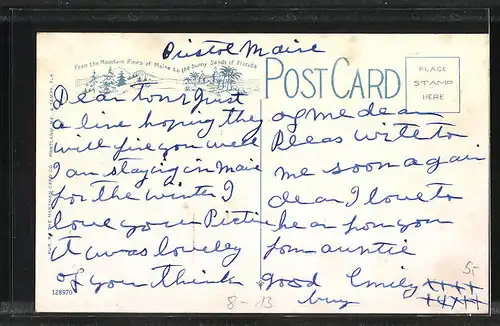 Bristol Maine
From the Mountain Pines of Maine to the Sunny Sands of Florida
POST CARD
PLACE
STAMP
HERE
Dear tom Just
a line hoping they
will fine you well
I am staying in Maie
for the winter I
love your Pictue
it was loveley
of you think
of me dean
Pleas write to
me soon again
dean I love to
hear from you
from auntie
good Emily
buy
xxxx
xxxx
5,-
128970
8-13